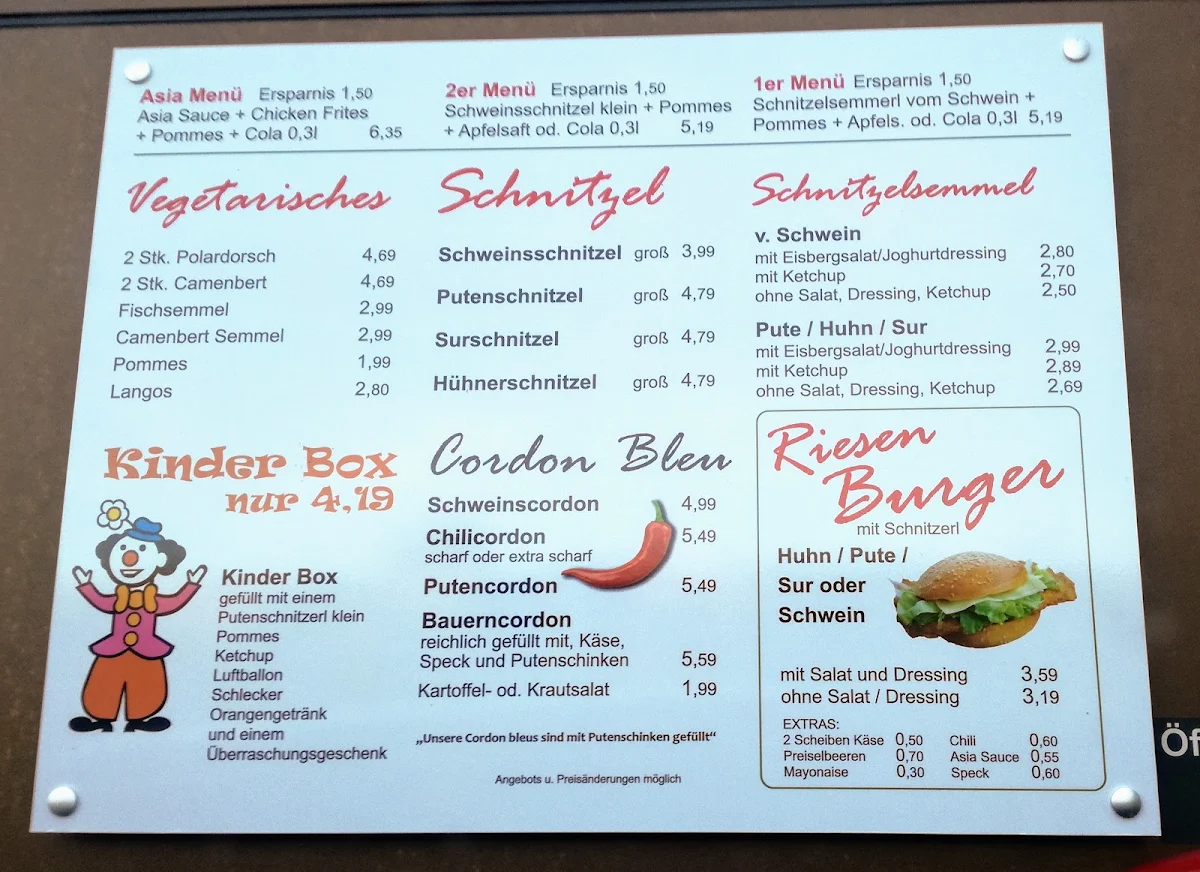 Asia Menü Ersparnis 1,50
Asia Sauce + Chicken Frites
+ Pommes + Cola 0,3l 6,35
2er Menü Ersparnis 1,50
Schweinsschnitzel klein + Pommes
+ Apfelsaft od. Cola 0,3l 5,19
1er Menü Ersparnis 1,50
Schnitzelsemmerl vom Schwein +
Pommes + Apfels. od. Cola 0,3l 5,19
Vegetarisches
2 Stk. Polardorsch 4,69
2 Stk. Camenbert 4,69
Fischsemmel 2,99
Camenbert Semmel 2,99
Pommes 1,99
Langos 2,80
Schnitzel
Schweinsschnitzel groß 3,99
Putenschnitzel groß 4,79
Surschnitzel groß 4,79
Hühnerschnitzel groß 4,79
Schnitzelsemmel
v. Schwein
mit Eisbergsalat/Joghurtdressing 2,80
mit Ketchup 2,70
ohne Salat, Dressing, Ketchup 2,50
Pute / Huhn / Sur
mit Eisbergsalat/Joghurtdressing 2,99
mit Ketchup 2,89
ohne Salat, Dressing, Ketchup 2,69
Kinder Box
nur 4,19
Kinder Box
gefüllt mit einem
Putenschnitzerl klein
Pommes
Ketchup
Luftballon
Schlecker
Orangengetränk
und einem
Überraschungsgeschenk
Cordon Bleu
Schweinscordon 4,99
Chilicordon 5,49
scharf oder extra scharf
Putencordon 5,49
Bauerncordon
reichlich gefüllt mit, Käse,
Speck und Putenschinken 5,59
Kartoffel- od. Krautsalat 1,99
„Unsere Cordon bleus sind mit Putenschinken gefüllt“
Angebots u. Preisänderungen möglich
Riesen
Burger
mit Schnitzerl
Huhn / Pute /
Sur oder
Schwein
mit Salat und Dressing 3,59
ohne Salat / Dressing 3,19
EXTRAS:
2 Scheiben Käse 0,50 Chili 0,60
Preiselbeeren 0,70 Asia Sauce 0,55
Mayonaise 0,30 Speck 0,60